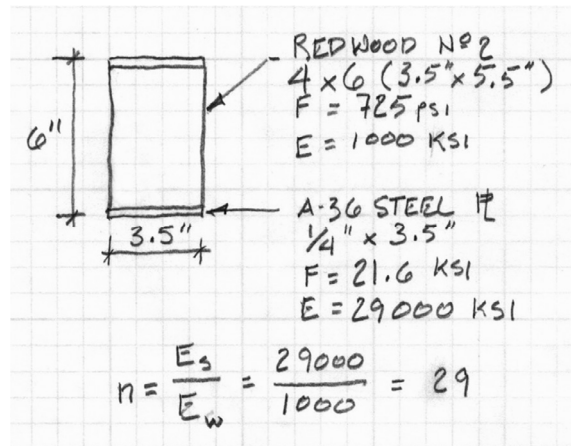 REDWOOD Nº 2
4 x 6 (3.5" x 5.5")
F = 725 psi
E = 1000 KSI
6"
A-36 STEEL PL
1/4" x 3.5"
3.5"
F = 21.6 KSI
E = 29000 KSI
n = Es/Ew = 29000/1000 = 29